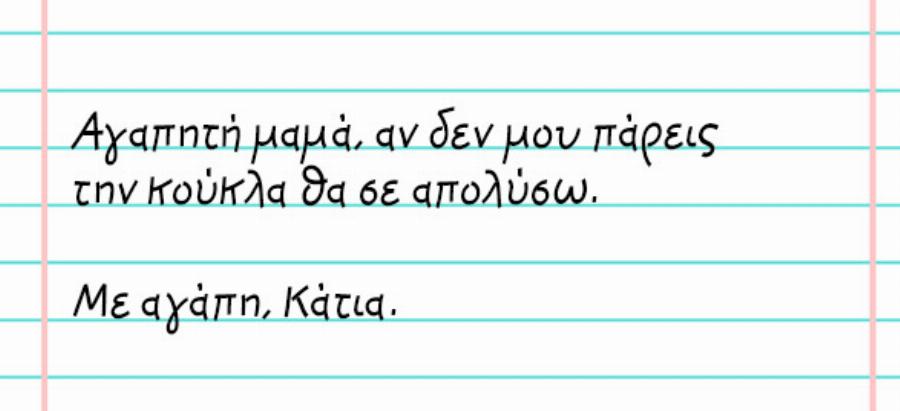 Αγαπητή μαμά, αν δεν μου πάρεις
την κούκλα θα σε απολύσω.
Με αγάπη, Κάτια.